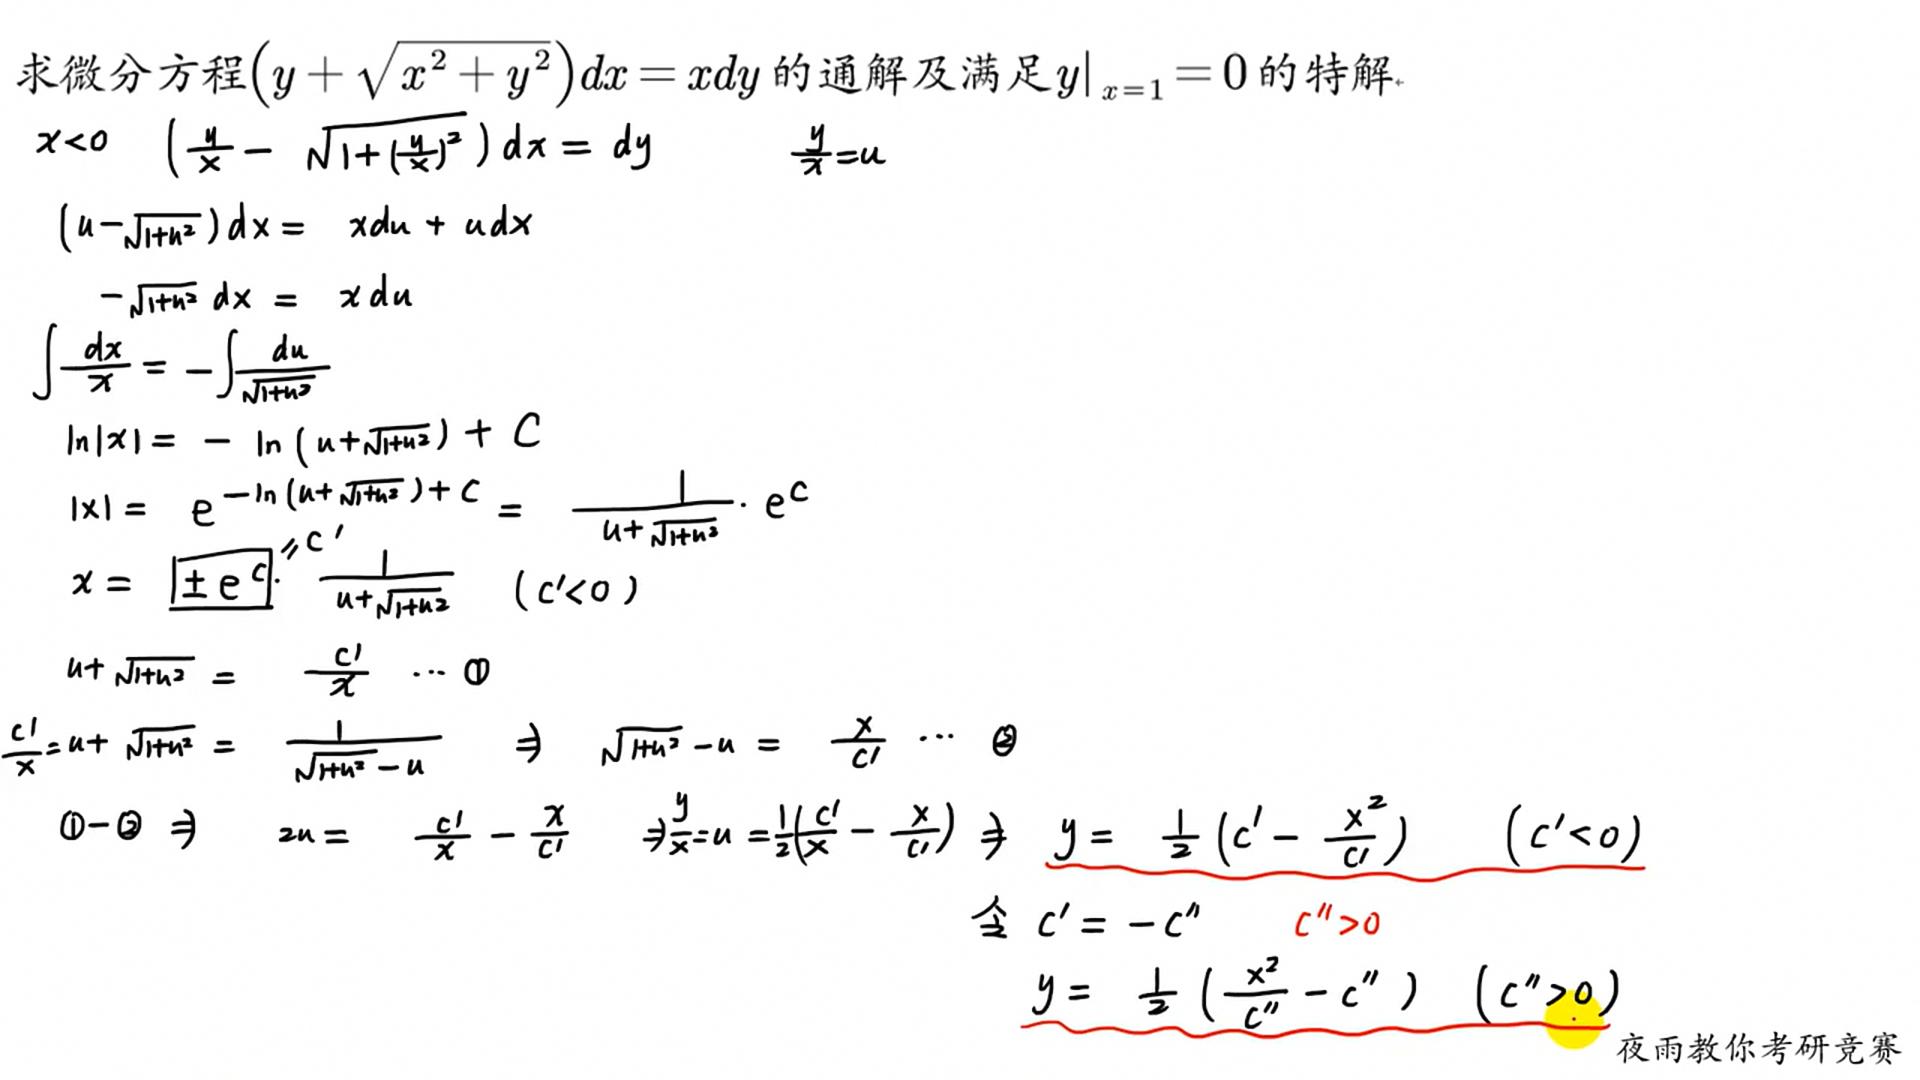 求微分方程(y + √(x² + y²))dx = xdy 的通解及满足y|ₓ₌₁ = 0 的特解.
x<0 (y/x − √(1+(y/x)²)) dx = dy y/x = u
(u−√(1+u²)) dx = xdu + udx
−√(1+u²) dx = xdu
∫ dx/x = −∫ du/√(1+u²)
ln|x| = − ln(u+√(1+u²)) + C
|x| = e^(−ln(u+√(1+u²))+C) = 1/(u+√(1+u²)) · e^C
x = ±e^C · 1/(u+√(1+u²)) = C' (C'<0)
u+√(1+u²) = C'/x ··· ①
C'/x = u+√(1+u²) = 1/(√(1+u²)−u) ⇒ √(1+u²)−u = x/C' ··· ②
①−② ⇒ 2u = C'/x − x/C' ⇒ y/x = u = 1/2(C'/x − x/C') ⇒ y = 1/2(C' − x²/C') (C'<0)
令 C' = −C'' C''>0
y = 1/2(x²/C'' − C'') (C''>0)
夜雨教你考研竞赛